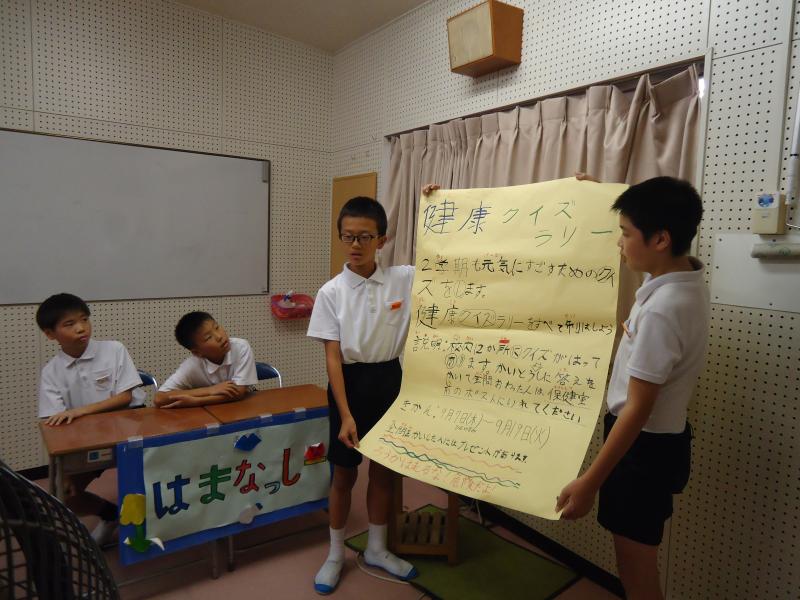 健康クイズ
ラリー
2学期も元気にすごすためのクイ
ズをします。
健康クイズラリーをすべて
説明:校内12か所にクイズがはって
あります かいとうした答えを
かいて全問おわった人は保健室
前のポストにいれてください
きかん:9月7日(木)―9月19日(火)
プレゼントがあります
ろうかははしるな 危険だよ
はまなっしー